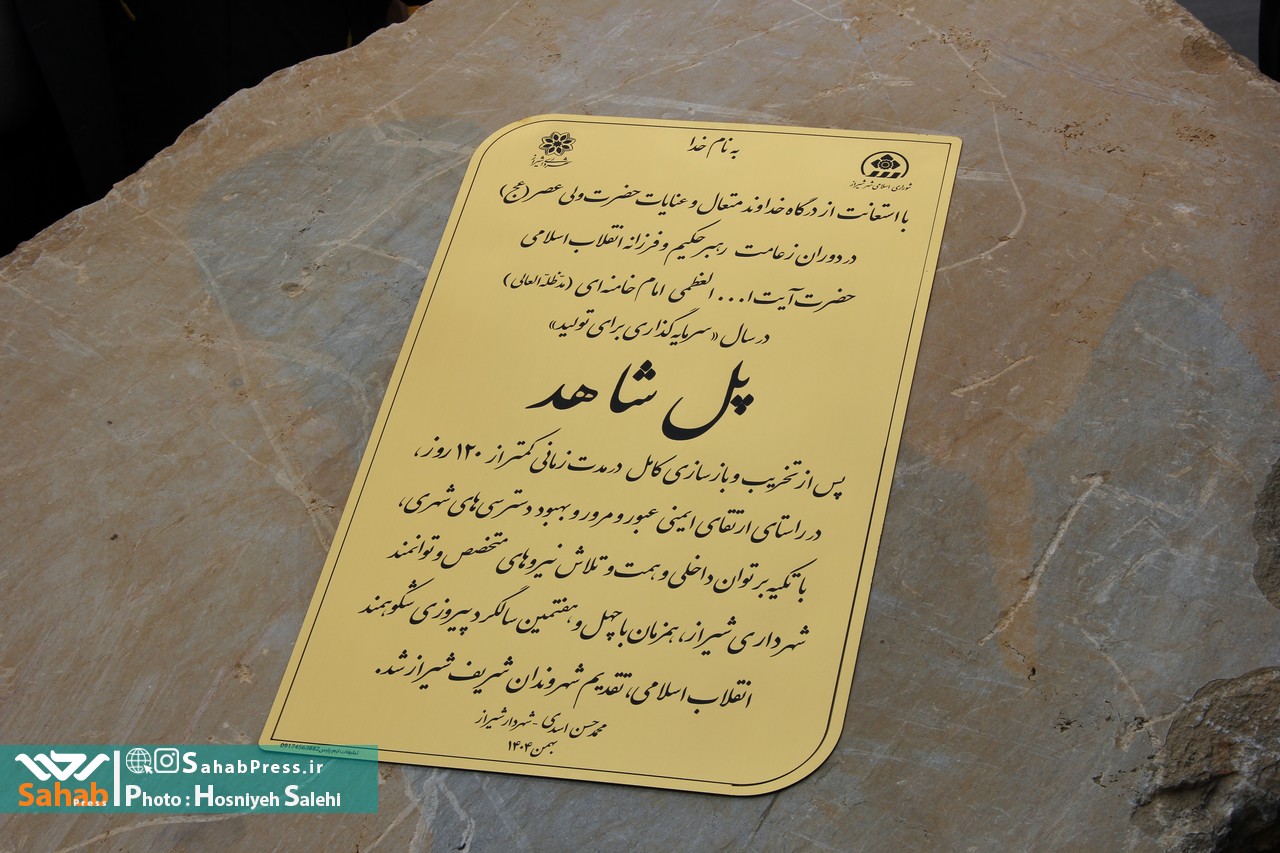 به نام خدا
شهرداری شیراز
شورای اسلامی شهر شیراز
با استعانت از درگاه خداوند متعال و عنایات حضرت ولی عصر (عج)
در دوران زعامت رهبر حکیم و فرزانه انقلاب اسلامی
حضرت آیت ا... العظمی امام خامنه ای (مدظله العالی)
در سال «سرمایه گذاری برای تولید»
پل شاهد
پس از تخریب و بازسازی کامل در مدت زمانی کمتر از ۱۲۰ روز،
در راستای ارتقای ایمنی عبور و مرور و بهبود دسترسی های شهری،
با تکیه بر توان داخلی و همت و تلاش نیروهای متخصص و توانمند
شهرداری شیراز، همزمان با چهل و هفتمین سالگرد پیروزی شکوهمند
انقلاب اسلامی، تقدیم شهروندان شریف شیراز شد.
محمدحسن اسدی - شهردار شیراز
بهمن ۱۴۰۴
Sahab Press
SahabPress.ir
Photo : Hosniyeh Salehi